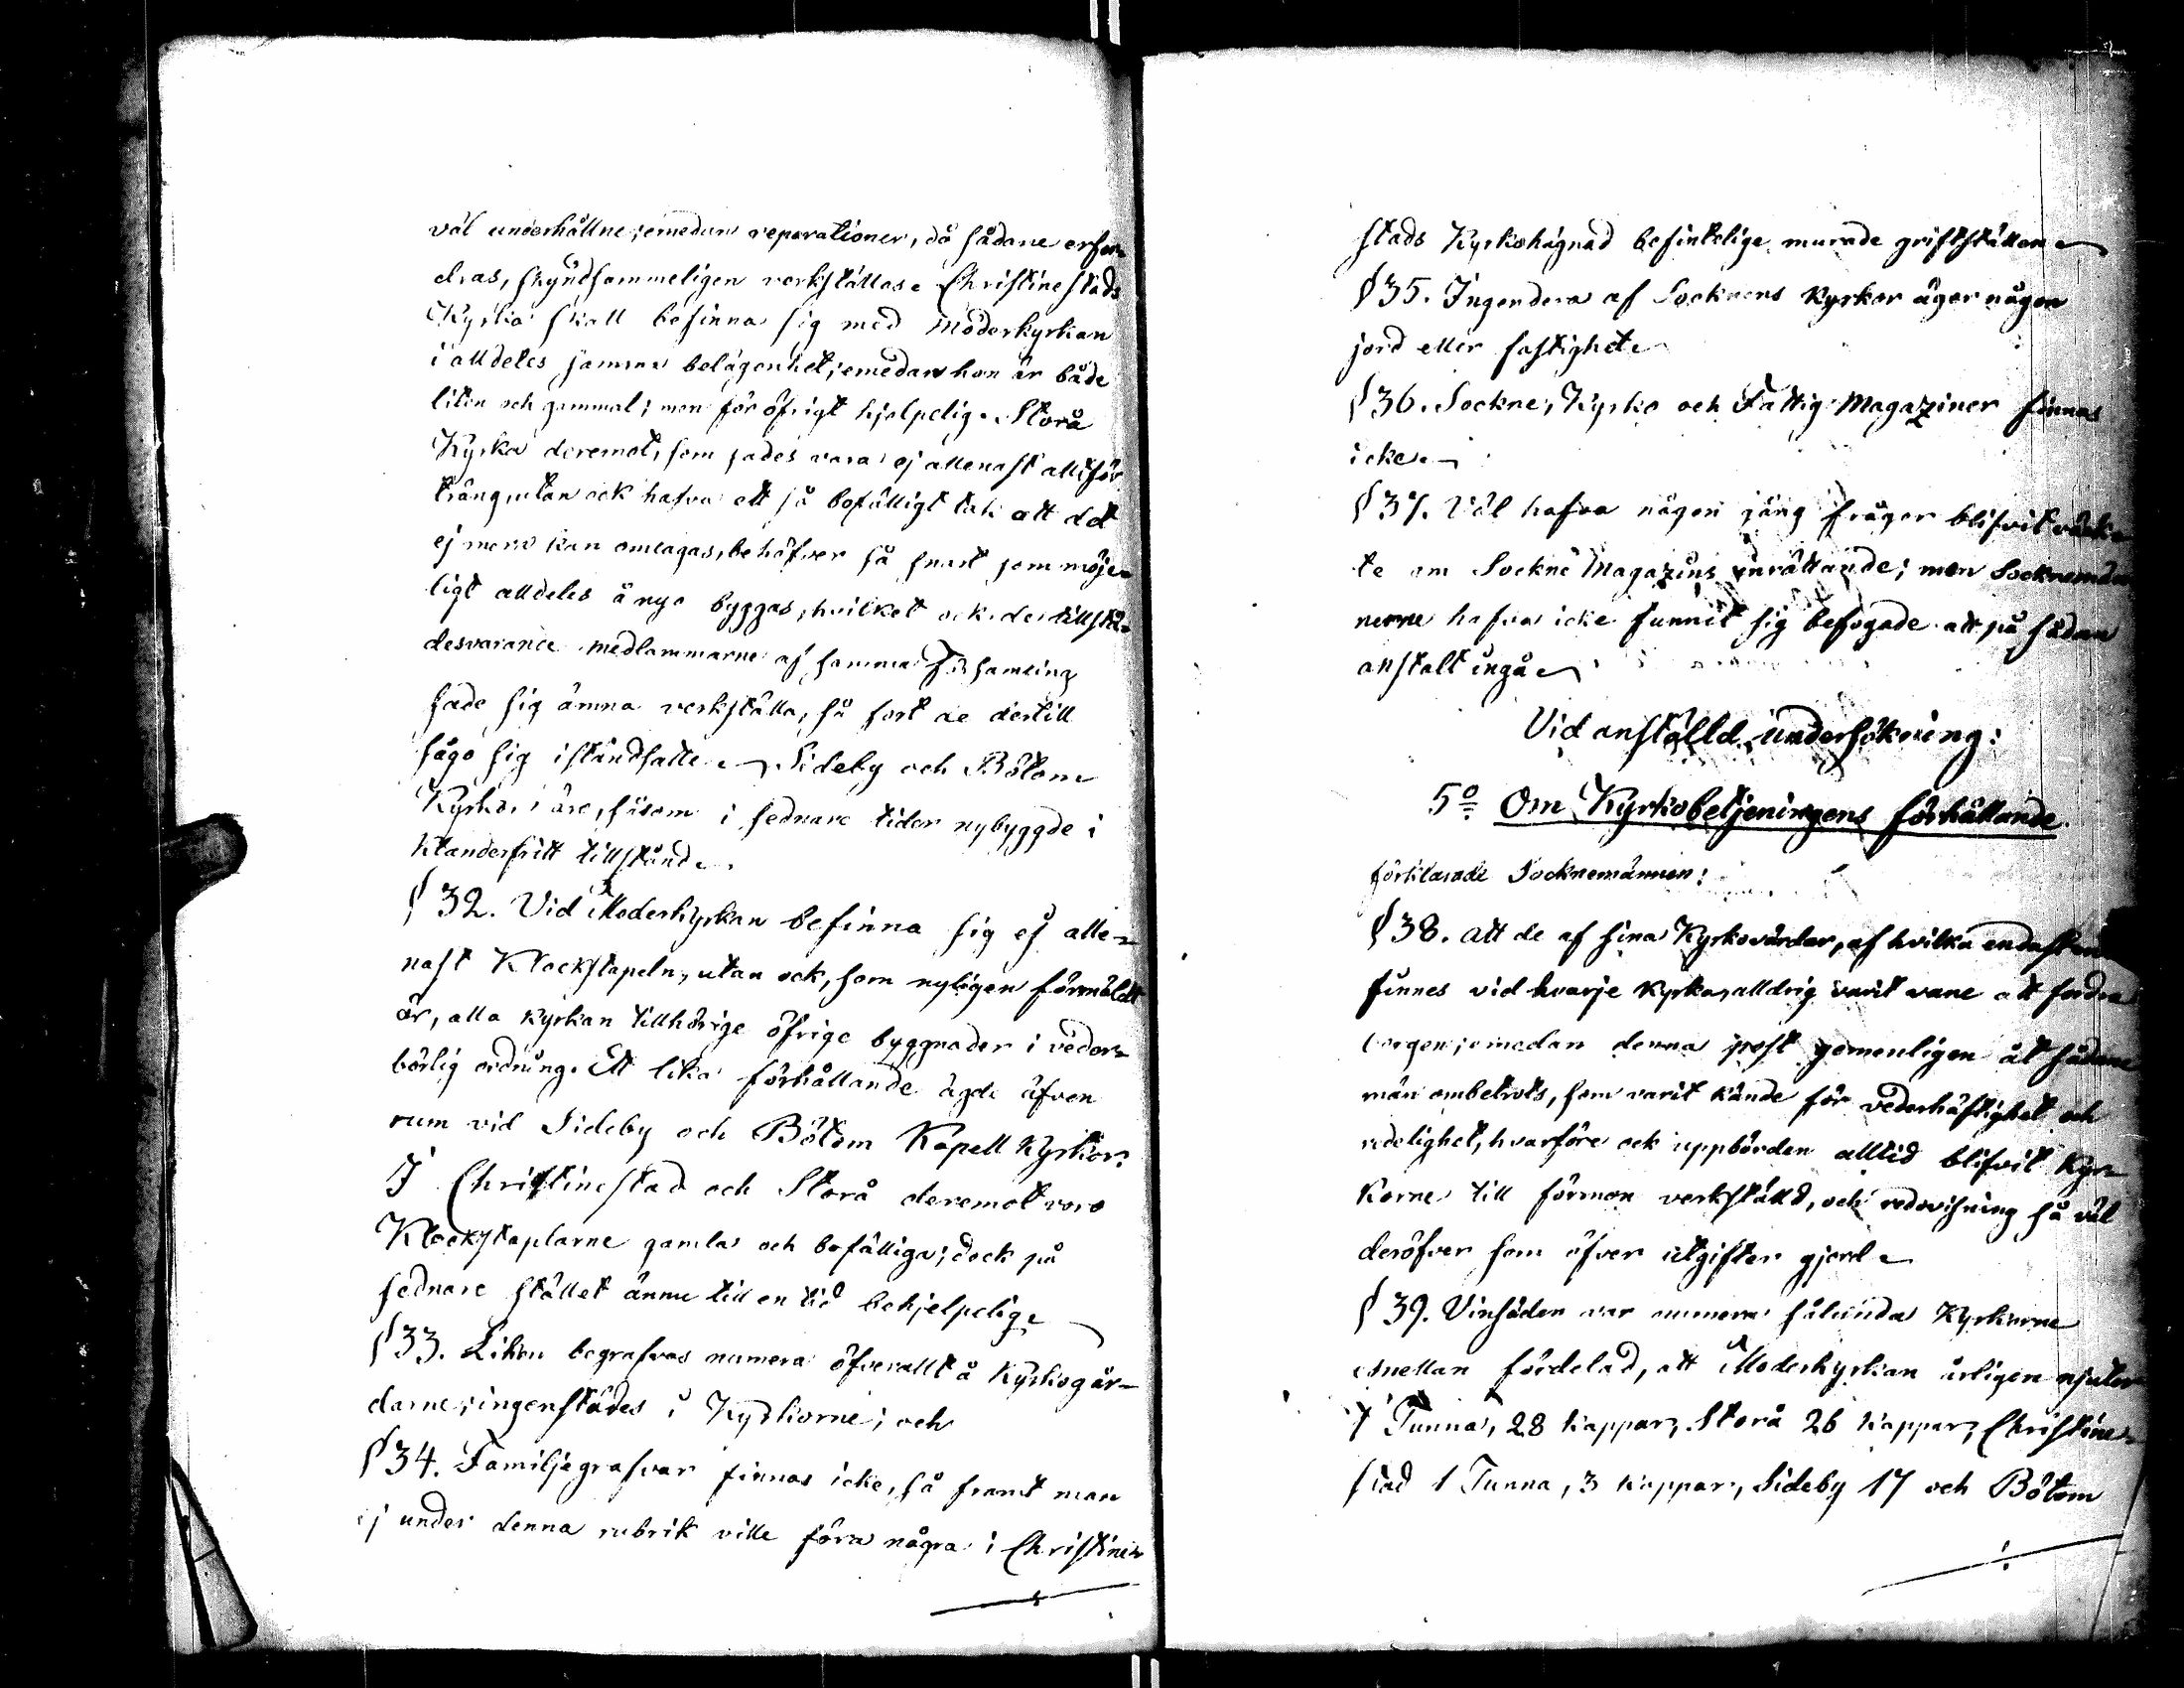 väl underhållne; emedan reparationer, då sådane erfor-
dras, skyndsammeligen verkställas. Christinestads
Kyrka skall befinna sig med Moderkyrkan
i alldeles samma belägenhet; emedan hon är både
liten och gammal; men för öfrigt hjelpelig. Storå
Kyrka deremot, som sades vara ej allenast alltför
trång, utan ock hafva ett så bofälligt tak att det
ej mera kan omlagas, behöfver så snart som möje-
ligt alldeles å nyo byggas, hvilket ock de tillstä-
desvarande medlammarne af samma Församling
sade sig ämna verkställa, så fort de dertill
sågo sig iståndsatte. Sideby och Bötom
Kyrkor äro, såsom i sednare tider nybyggde i
klanderfritt tillstånd.
§ 32. Vid Moderkyrkan befinna sig ej alle-
nast Klockstapeln, utan ock, som nyligen förmäldt
är, alla kyrkan tillhörige öfrige byggnader i veder-
börlig ordning. Ett lika förhållande ägde äfven
rum vid Sideby och Bötom Kapell Kyrkor.
I Christinestad och Storå deremot voro
Klockstaplarne gamla och bofälliga; dock på
sednare stället ännu till en tid behjelpelig.
§ 33. Liken begrafvas numera öfverallt å Kyrkogår-
darne; ingenstädes i Kyrkorne; och
§ 34. Familjegrafvar finnas icke, så framt man
ej under denna rubrik ville föra några i Christine-
stads Kyrkohägnad befintelige murade griftställen.
§ 35. Ingendera af Socknens Kyrkor äger någon
jord eller fastighet.
§ 36. Sockne, Kyrko och Fattig Magaziner finnas
icke.
§ 37. Väl hafva någon gång frågor blifvit väck-
te om Sockne Magazins inrättande; men Socknemän-
nerne hafva icke funnit sig befogade att på sådan
anstalt ingå.
Vid anställd undersökning:
5º Om Kyrkobetjeningens förhållande
förklarade Socknemännen:
§ 38. att de af sina Kyrkovärdar, af hvilka endast en
finnes vid hvarje Kyrka, alldrig varit vane att fordra
borgen; emedan denna post gemenligen åt sådane
män ombetrots, som varit kände för vederhäftighet och
redelighet, hvarföre ock uppbörden alltid blifvit Kyr-
korne till förmon verkställd, och redovisning så väl
deröfver som öfver utgifter gjord.
§ 39. Vinsäden var numera sålunda Kyrkorne
emellan fördelad, att Moderkyrkan årligen njuter
7 Tunna, 28 kappar, Storå 26 kappar, Christine-
stad 1 Tunna, 3 kappar, Sideby 17 och Bötom